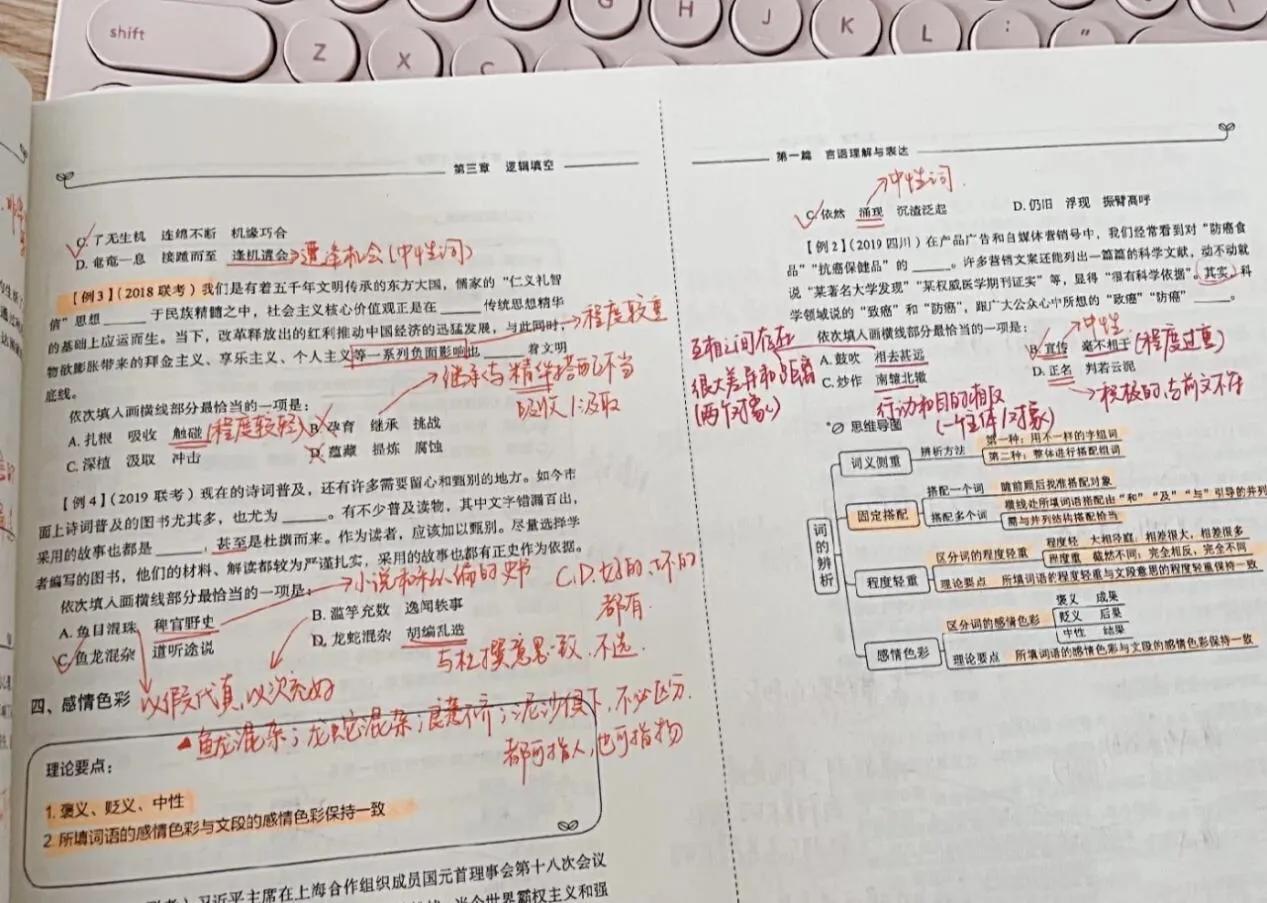 shift
Z
X
C
G
H
J
K
L
:
"
第三章 逻辑填空
C. 了无生机 连绵不断 机缘巧合
D. 奄奄一息 接踵而至 逢机遘会
遭逢机会(中性词)
【例3】(2018联考)我们是有着五千年文明传承的东方大国，儒家的“仁义礼智
信”思想______于民族精髓之中，社会主义核心价值观正是在______传统思想精华
的基础上应运而生。当下，改革释放出的红利推动中国经济的迅猛发展，与此同时，
程度较重
物欲膨胀带来的拜金主义、享乐主义、个人主义等一系列负面影响也______着文明
底线。
继承与精华搭配不当
吸收/汲取
依次填入画横线部分最恰当的一项是:
A. 扎根 吸收 触碰
(程度较轻)
B. 孕育 继承 挑战
C. 深植 汲取 冲击
D. 蕴藏 提炼 腐蚀
【例4】(2019联考)现在的诗词普及，还有许多需要留心和甄别的地方。如今市
面上诗词普及的图书尤其多，也尤为______。有不少普及读物，其中文字错漏百出，
采用的故事也都是______，甚至是杜撰而来。作为读者，应该加以甄别。尽量选择学
者编写的图书，他们的材料、解读都较为严谨扎实，采用的故事也都有正史作为依据。
依次填入画横线部分最恰当的一项是:
小说和私人编的史书
C.D.好的、坏的
都有.
A. 鱼目混珠 稗官野史
B. 滥竽充数 逸闻轶事
C. 鱼龙混杂 道听途说
D. 龙蛇混杂 胡编乱造
与杜撰意思一致,不选.
以假代真,以次充好
四、感情色彩
鱼龙混杂;龙蛇混杂;良莠不齐;泥沙俱下,不必区分.
都可指人,也可指物
理论要点:
1. 褒义、贬义、中性
2. 所填词语的感情色彩与文段的感情色彩保持一致
习近平主席在上海合作组织成员国元首理事会第十八次会议
当今世界霸权主义和强
第一篇 言语理解与表达
中性词.
C. 依然 涌现 沉渣泛起
D. 仍旧 浮现 振臂高呼
【例2】(2019四川)在产品广告和自媒体营销号中，我们经常看到对“防癌食
品”“抗癌保健品”的______。许多营销文案还能列出一篇篇的科学文献，动不动就
说“某著名大学发现”“某权威医学期刊证实”等，显得“很有科学依据”。其实，科
学领域说的“致癌”和“防癌”，跟广大公众心中所想的“致癌”“防癌”______。
依次填入画横线部分最恰当的一项是:
中性
互相之间存在
很大差异和距离
(两个对象)
A. 鼓吹 相去甚远
B. 宣传 毫不相干
(程度过重)
C. 炒作 南辕北辙
D. 正名 判若云泥
行动和目的相反
(一个主体/对象)
积极的,与前文不符
思维导图
词的辨析
词义侧重
辨析方法
第一种：用不一样的字组词
第二种：整体进行搭配组词
固定搭配
搭配一个词
瞻前顾后找准搭配对象
搭配多个词
横线处所填词语搭配由“和”“及”“与”引导的并列
需与并列结构搭配恰当
程度轻重
区分词的程度轻重
程度轻 大相径庭：相差很大，相差很多
程度重 截然不同：完全相反，完全不同
理论要点
所填词语的程度轻重与文段意思的程度轻重保持一致
感情色彩
区分词的感情色彩
褒义 成果
贬义 后果
中性 结果
理论要点
所填词语的感情色彩与文段的感情色彩保持一致